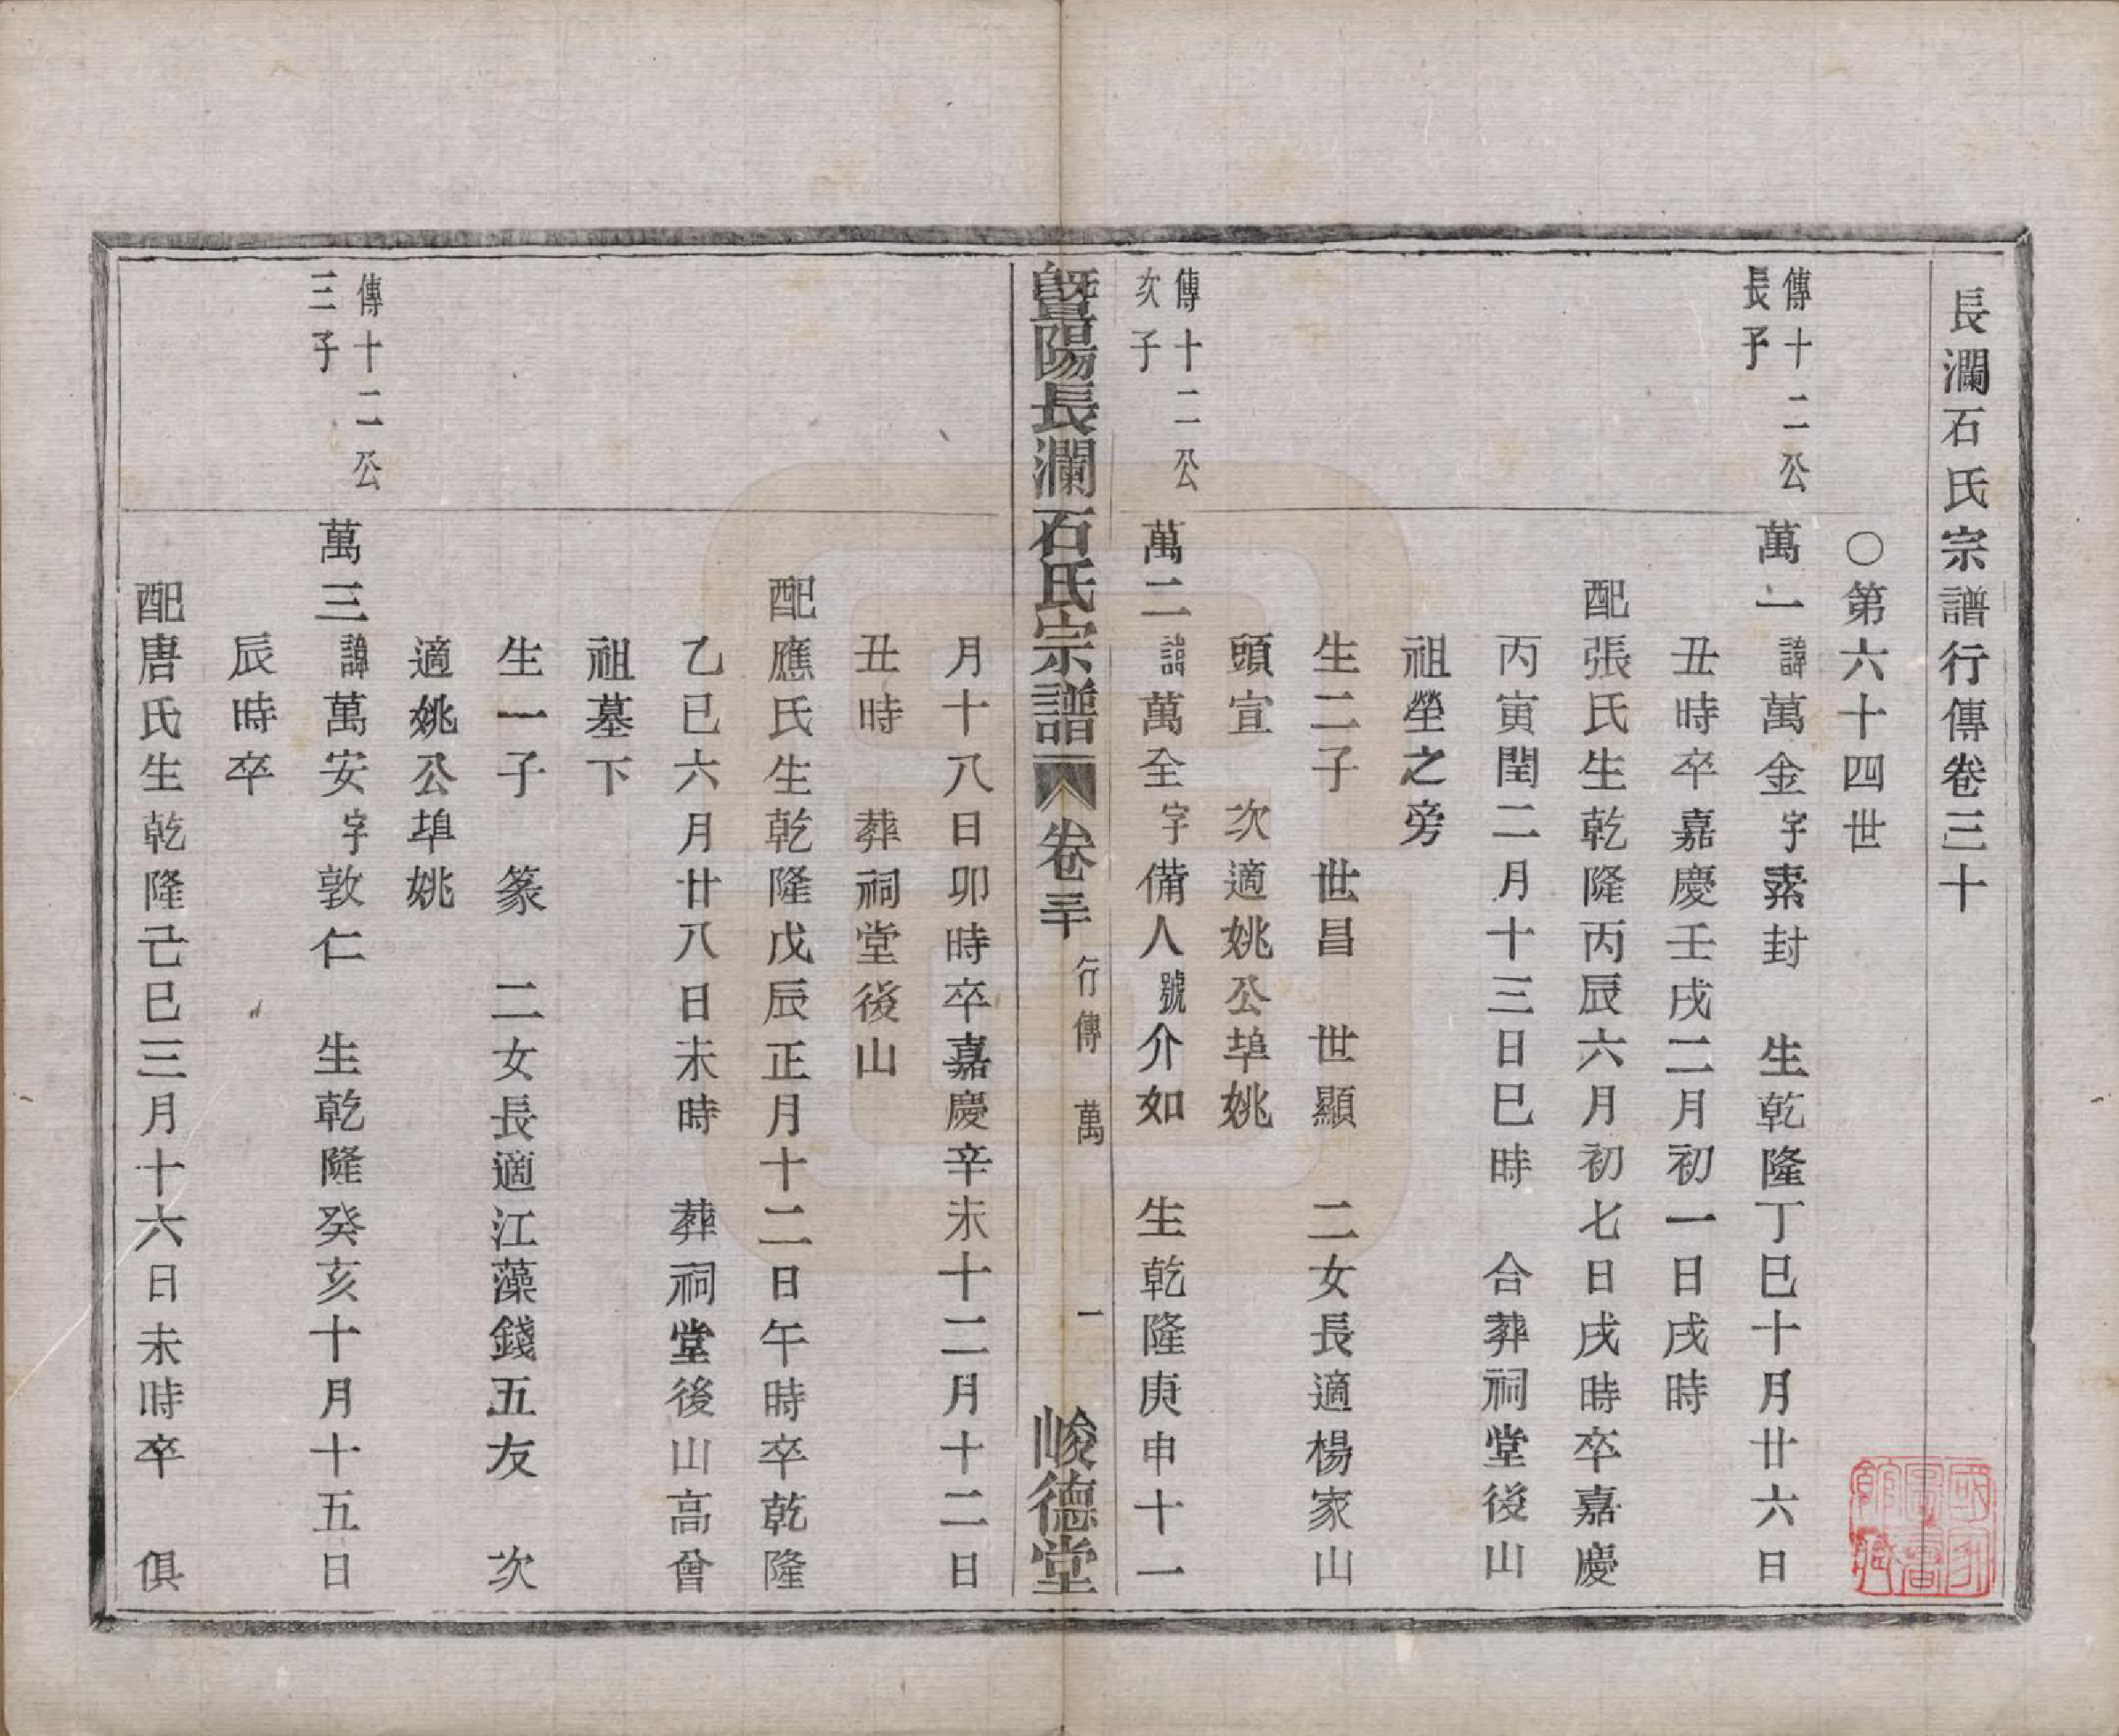 長瀾石氏宗譜行傳卷三十
〇第六十四世
傳十二公
長子
萬一諱萬金字素封　生乾隆丁巳十月廿六日
丑時卒嘉慶壬戌二月初一日戌時
配張氏生乾隆丙辰六月初七日戌時卒嘉慶
丙寅閏二月十三日巳時　合葬祠堂後山
祖塋之旁
生二子　世昌　世顯　二女長適楊家山
頭宣　次適姚公埠姚
傳十二公
次子
萬二諱萬全字備人號介如　生乾隆庚申十一
暨陽長瀾石氏宗譜　卷三十　行傳　萬　一　峻德堂
月十八日卯時卒嘉慶辛未十二月十二日
丑時　葬祠堂後山
配應氏生乾隆戊辰正月十二日午時卒乾隆
乙巳六月廿八日未時　葬祠堂後山高曾
祖墓下
生一子　篆　二女長適江藻錢五友　次
適姚公埠姚
傳十二公
三子
萬三諱萬安字敦仁　生乾隆癸亥十月十五日
辰時卒
配唐氏生乾隆己巳三月十六日未時卒　俱
國家圖書館藏